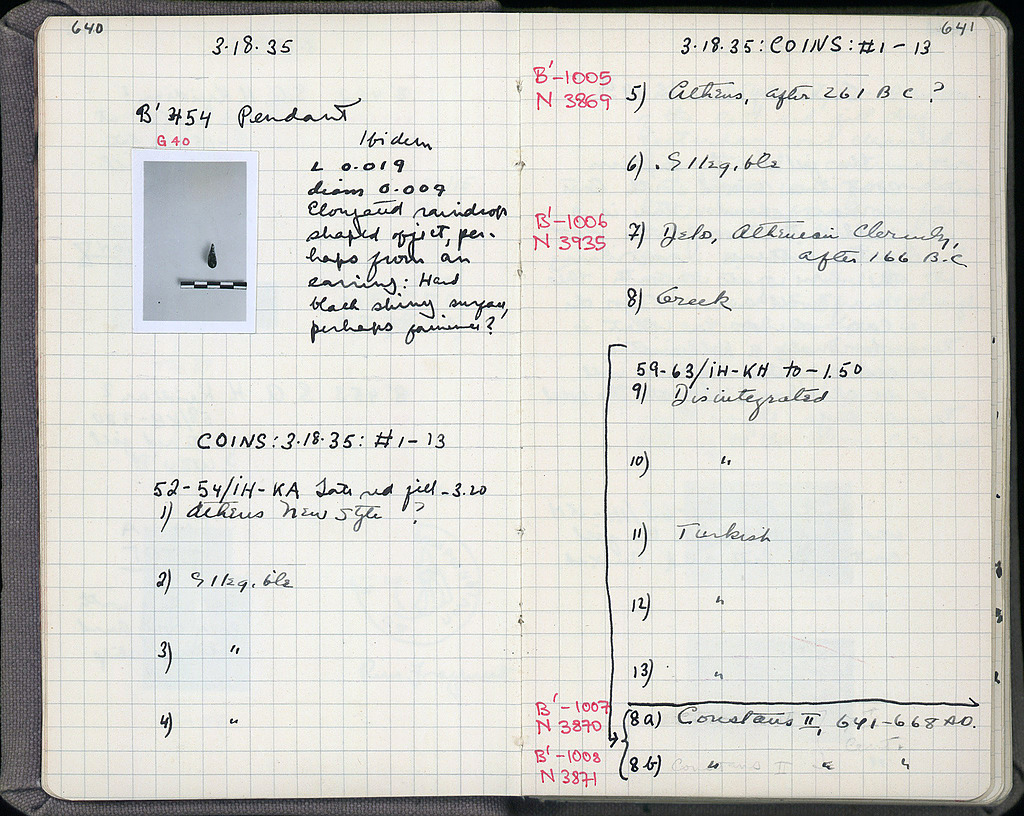 640
3·18·35
B' #54 Pendant
G 40
Ibidem
L 0.019
diam 0.009
Elongated raindrop
shaped object, per-
haps from an
earring: Hard
black shiny surface,
perhaps faience?
COINS: 3·18·35: #1-13
52-54/ΙΗ-ΚΑ Late red fill -3.20
1) Athens New Style ?
2) Illegible
3) "
4) "
641
3·18·35: COINS: #1-13
B'-1005
N 3869
5) Athens, after 261 B C ?
6) Illegible
B'-1006
N 3935
7) Delo, Athenian Cleruchy,
after 166 B.C
8) Greek
59-63/ΙΗ-ΚΗ to -1.50
9) Disintegrated
10) "
11) Turkish
12) "
13) "
B'-1007
N 3870
8a) Constans II, 641-668 AD.
B'-1008
N 3871
8b) " " "